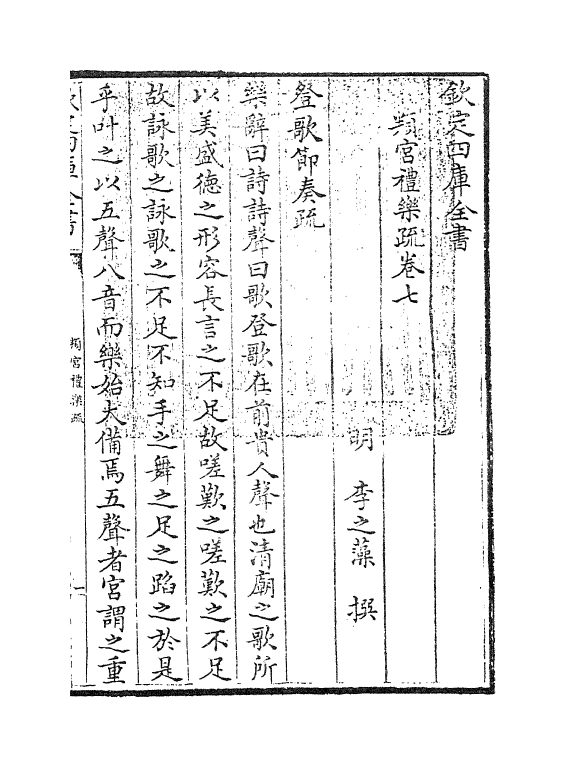 欽定四庫全書
頖宮禮樂疏卷七
明 李之藻 撰
登歌節奏疏
樂辭曰詩詩聲曰歌登歌在前貴人聲也清廟之歌所
以美盛德之形容長言之不足故嗟歎之嗟歎之不足
故詠歌之詠歌之不足不知手之舞之足之蹈之於是
乎叶之以五聲八音而樂始大備焉五聲者宮謂之重
欽定四庫全書
頖宮禮樂疏
一